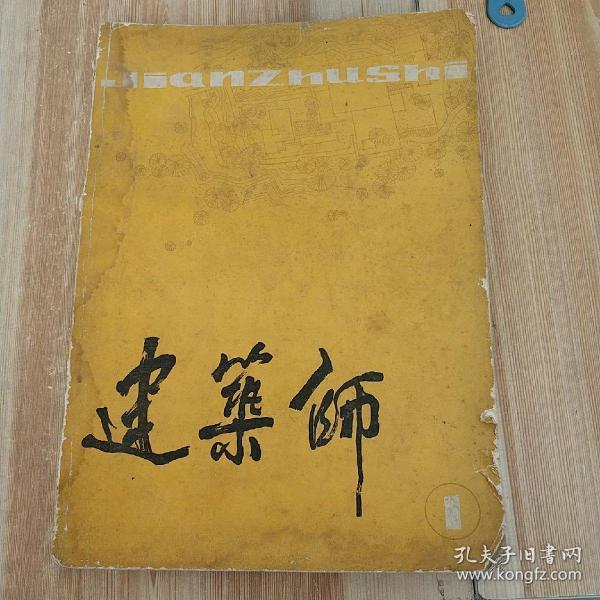 JianZhuShi
建築師
1
孔夫子旧書网
www.kongfz.com